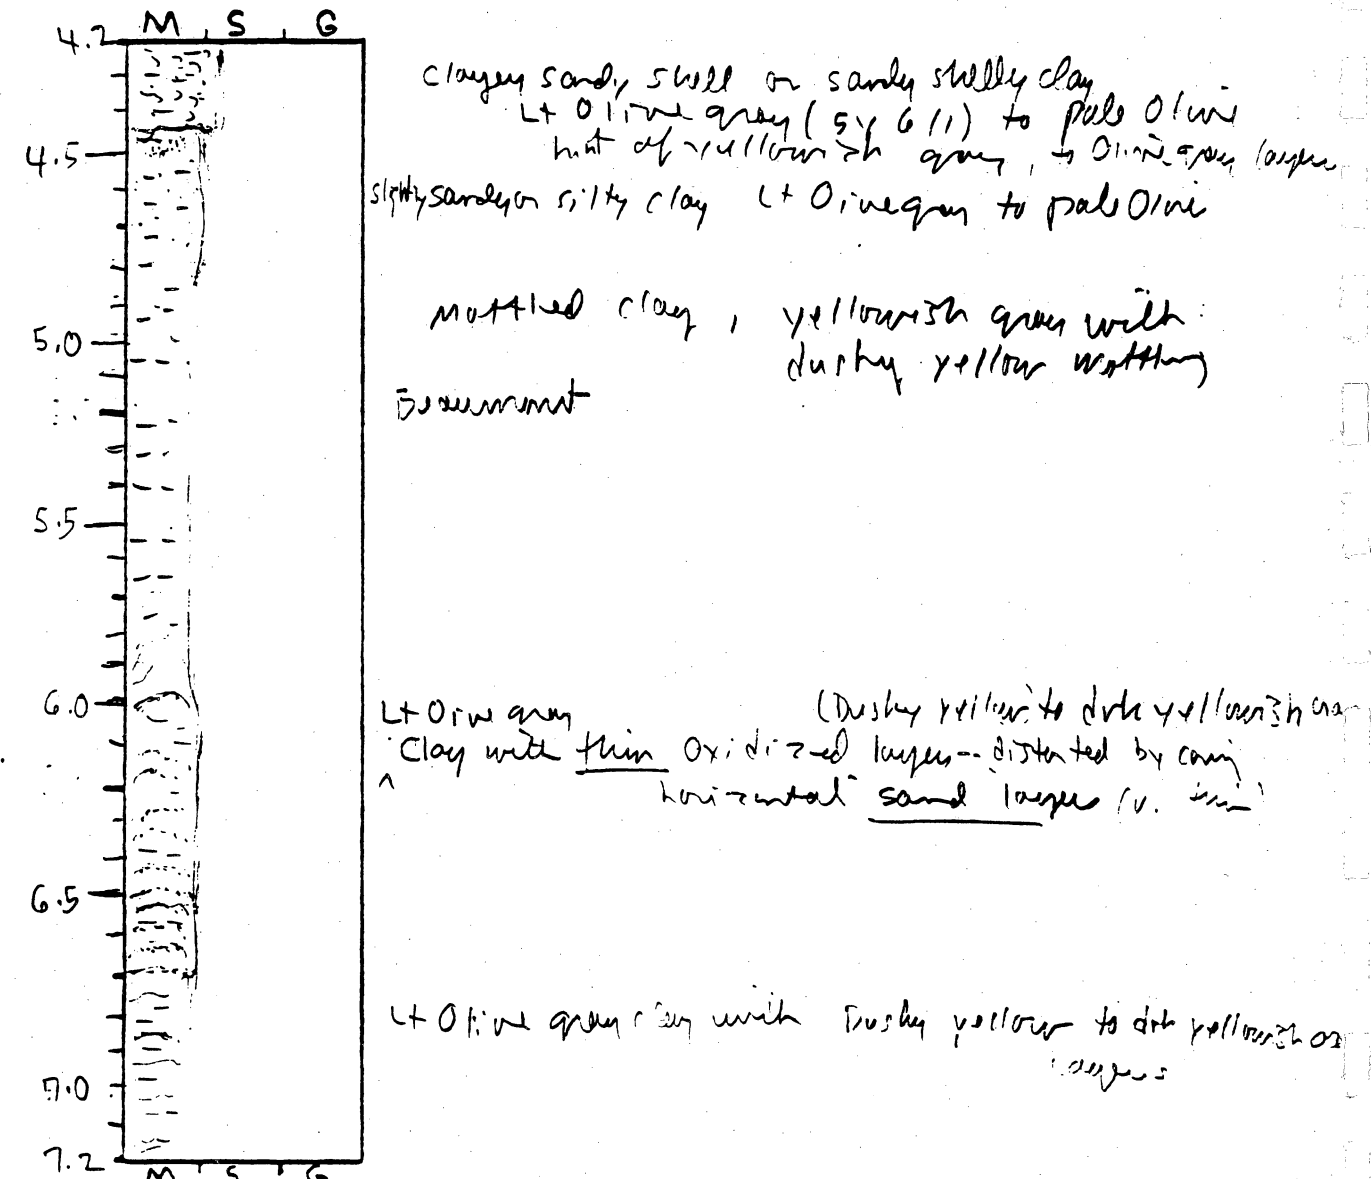 M S G
4.2
clayey sandy shell or sandy shelly clay
Lt Olive gray (5Y 6/1) to pale Olive
hint of yellowish gray, to Olive gray layers
4.5
slightly sandy or silty clay Lt Olive gray to pale Olive
Mottled clay, yellowish gray with
5.0
dusky yellow mottling
Beaumont
5.5
6.0
Lt Olive gray (Dusky yellow to drk yellowish
Clay with thin Oxidized layers -- distorted by coring
^
horizontal sand layers (v. thin)
6.5
Lt Olive gray clay with Dusky yellow to drk yellowish
layers
7.0
7.2
M S G